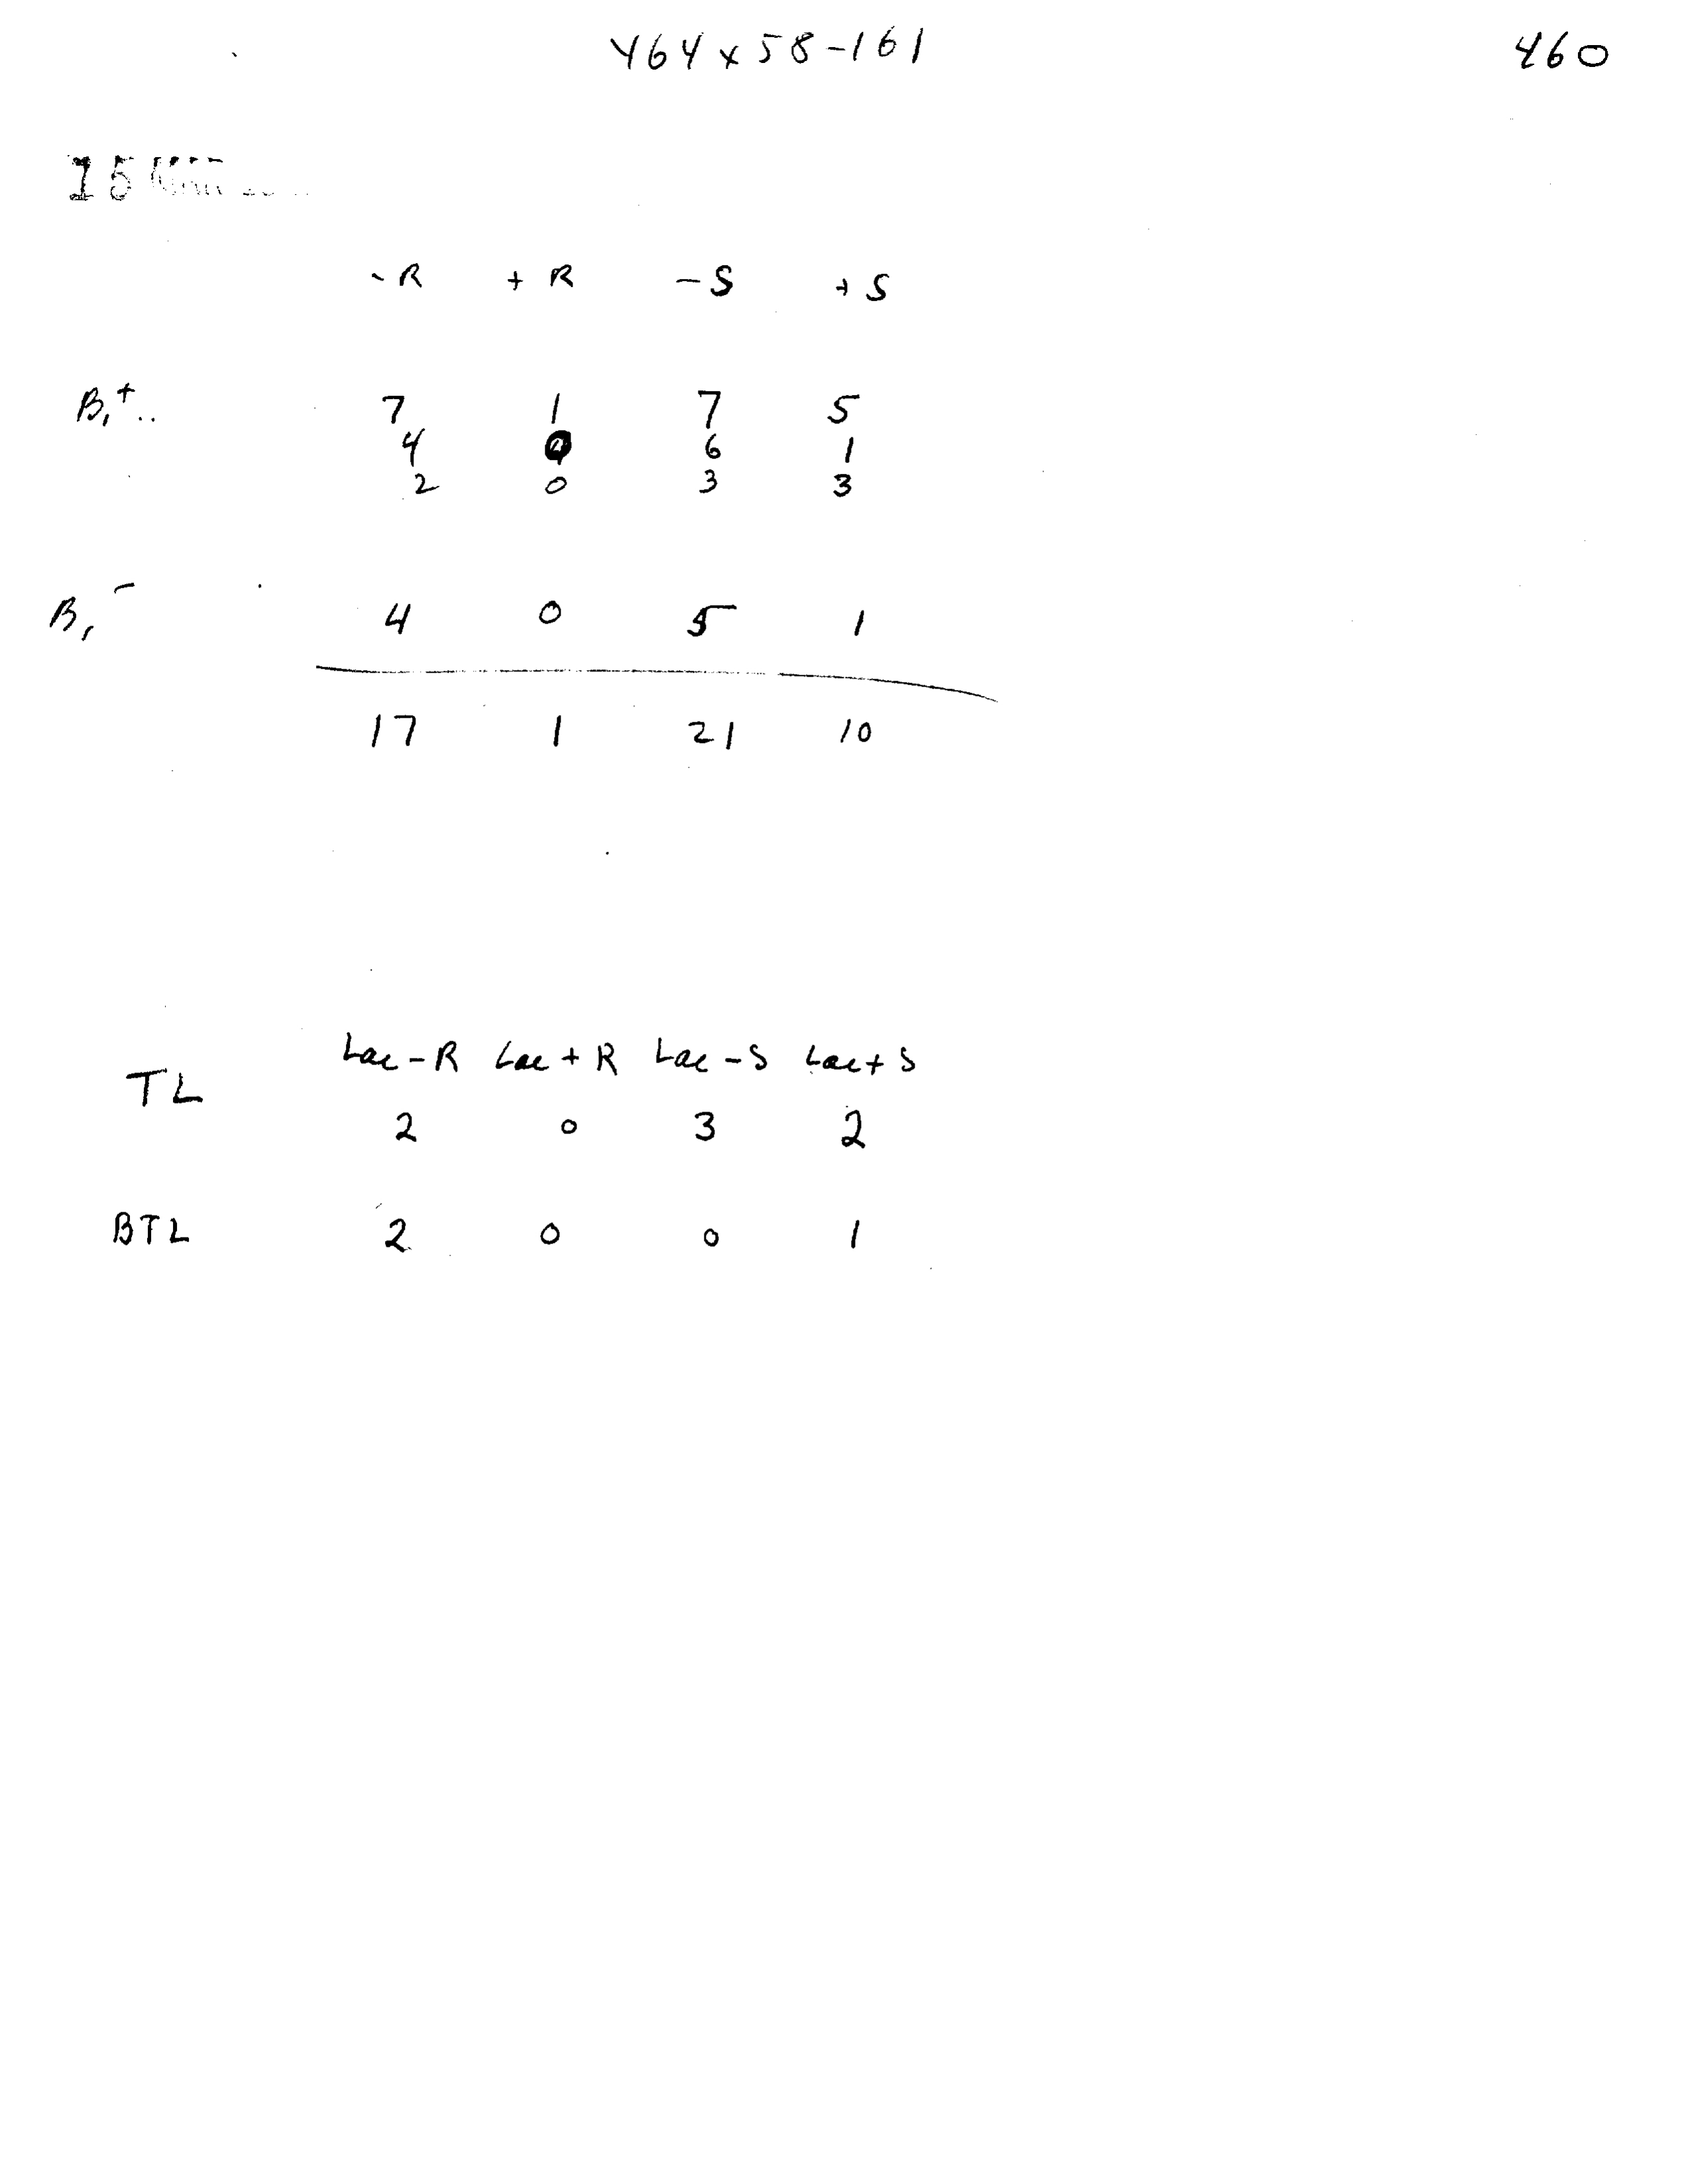 Y64 x 58-161 460
15
-R +R -S +S
B₁⁺.. 7 1 7 5
4 6 1
2 0 3 3
B₁⁻ 4 0 5 1
17 1 21 10
Lac-R Lac+R Lac-S Lac+S
TL
2 0 3 2
BTL 2 0 0 1